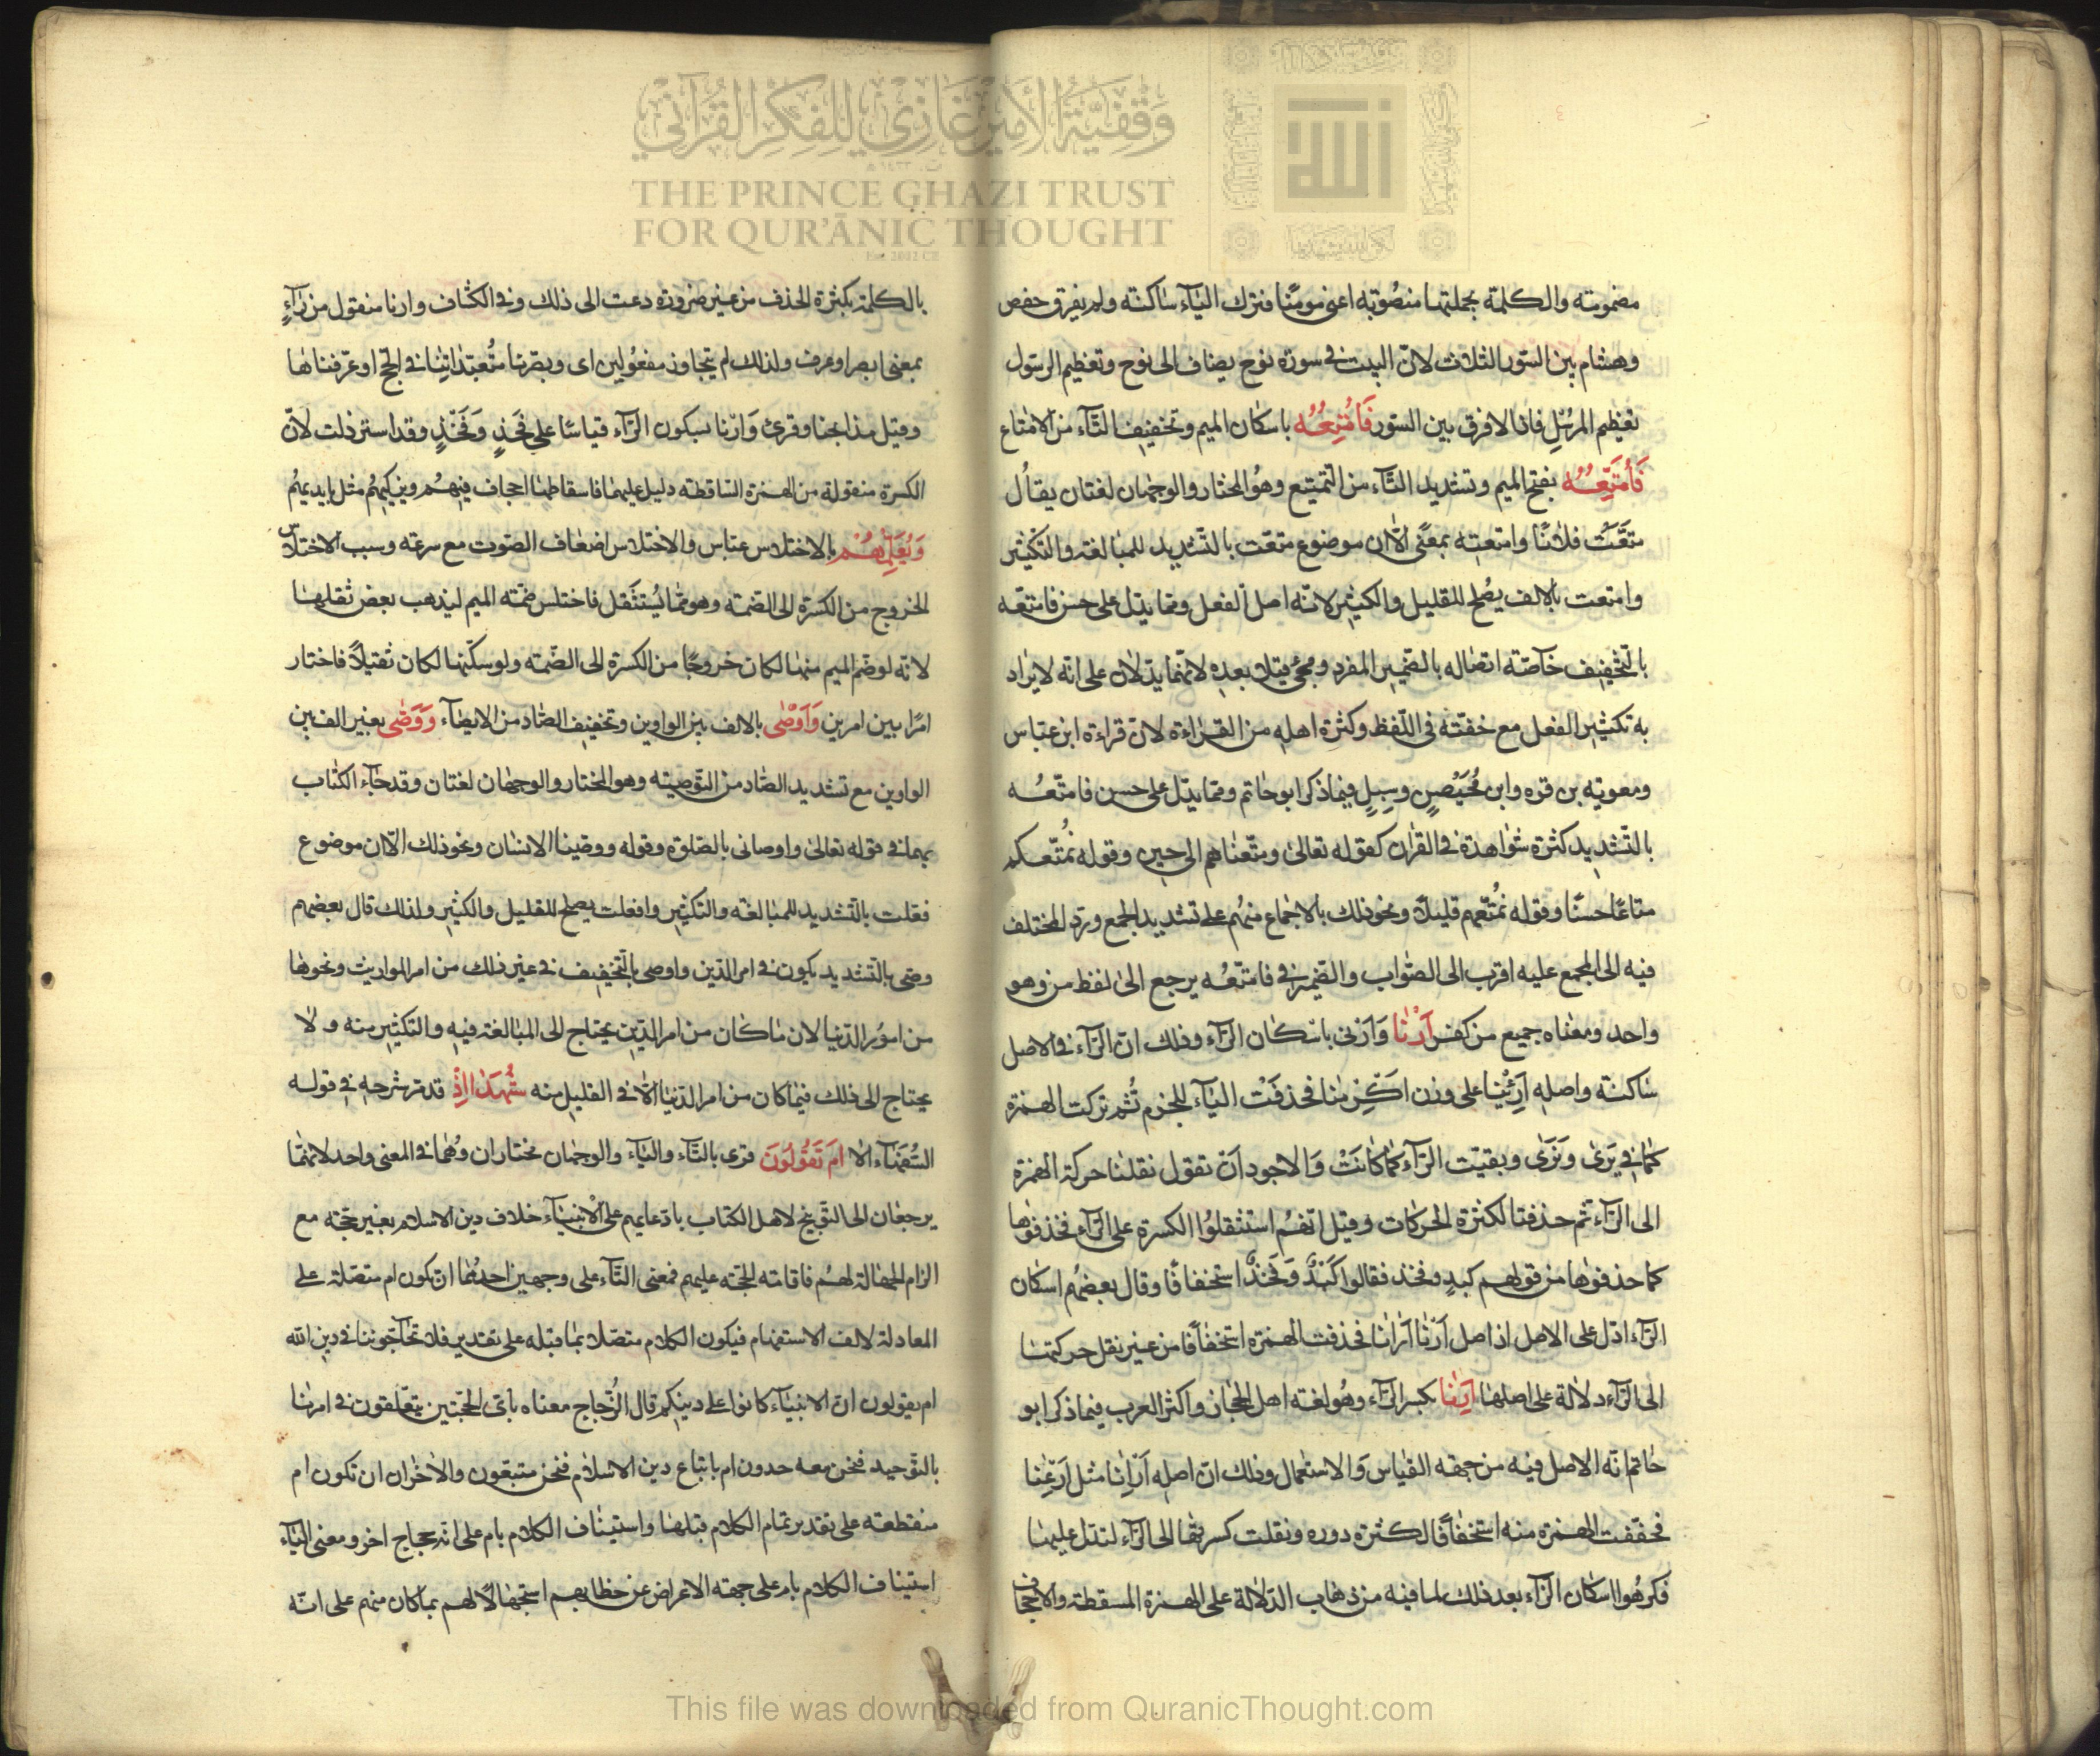 وقفية الأمير غازي للفكر القرآني
THE PRINCE GHAZI TRUST
FOR QUR'ĀNIC THOUGHT
Est. 2012 CE
مضمومة والكلمة بجملتها منصوبة اعنى مومنا فترك الياء ساكنة ولم يفرق حفص
وهشام بين السور الثلاث لان البيت فى سورة نوح يضاف الى نوح وتعظيم الرسول
تعظيم المرسل فاذا لا فرق بين السور فَأُمْتِعُهُ باسكان الميم وتخفيف التاء من الامتاع
فَأُمَتِّعُهُ بفتح الميم وتشديد التاء من التمتيع وهو المختار والوجهان لغتان يقال
متعت فلانا وامتعته بمعنى الا ان موضوع متعت بالتشديد للمبالغة والتكثير
وامتعت بالالف يصلح للتقليل والكثير لانه اصل الفعل ومما يدل على حسن فامتعه
بالتخفيف خاصة اتصاله بالضمير المفرد ومجئ قليلا بعده لانهما يدلان على انه لا يراد
به تكثير الفعل مع خفته فى اللفظ وكثرة اهله من القراءة لان قراءة ابن عباس
ومعوية بن قره وابن محيصن وسبل فيما ذكر ابو حاتم ومما يدل على حسن فامتعه
بالتشديد كثرة شواهدة فى القران كقوله تعالى ومتعناهم الى حين وقوله نمتعكم
متاعا حسنا وقوله نمتعهم قليلا ونحو ذلك بالاجماع منهم على تشديد الجمع ورد المختلف
فيه الى المجمع عليه اقرب الى الصواب والضمير فى فامتعه يرجع الى لفظ من وهو
واحد ومعناه جميع من كفر اَرْنَا وَارنى باسكان الراء وذلك ان الراء فى الاصل
ساكنة واصله اَرْئِيْنا على وزن اكرمنا فحذفت الياء للجزم ثم تركت الهمزة
كما فى يرى وَنَرى وبقيت الراء كما كانت وَالاجود ان تقول نقلنا حركة الهمزة
الى الراء ثم حذفتا لكثرة الحركات وقيل انهم استثقلوا الكسرة على الراء فحذفوها
كما حذفوها من قولهم كبد وفخذ فقالوا كَبْدٌ وَفَخْذٌ استخفافا وقال بعضهم اسكان
الراء ادل على الاصل اذ اصل اَرْنا اَرانا فحذفت الهمزة استخفافا من غير نقل حركتها
الى الراء دلالة على اصلها اَرِنا بكسر الراء وهو لغة اهل الحجاز واكثر العرب فيما ذكر ابو
حاتم انه الاصل فيه من جهة القياس وَالاستعمال وذلك ان اصله اَرْاِنا مثل اَرْعِنا
فخففت الهمزة منه استخفافا لكثرة دوره ونقلت كسرتها الى الراء لتدل عليها
فكرهوا اسكان الراء بعد ذلك لما فيه من ذهاب الدلالة على الهمزة المسقطة والاجحاف
بالكلمة بكثرة الحذف من غير ضرورة دعت الى ذلك وفى الكشاف وارنا منقول من راءٍ
بمعنى ابصر او عرف ولذلك لم يتجاوز مفعولين اى وبصرنا متعبداتنا فى الحج او عرفناها
وقيل مذابحنا وقرئ وَارْنا بسكون الراء قياسا على فَخِذٍ وَفَخْذٍ وقد استرذلت لان
الكسرة منقولة من الهمزة الساقطة دليل عليها فاسقاطها اجحاف فيهم ويزكيهم مثل ايديهم
وَيُعَلِّمُهُمْ بالاختلاس عباس والاختلاس اضعاف الصوت مع سرعة وسبب الاختلاس
الخروج من الكسرة الى الضمة وهو مما يستثقل فاختلس ضمة الميم ليذهب بعض ثقلها
لانه لو ضم الميم منها لكان خروجا من الكسرة الى الضمة ولو سكنها لكان ثقيلا فاختار
امرا بين امرين وَاَوْصٰى بالالف بين الواوين وتخفيف الصاد من الايصاء وَوَصّٰى بغير الف بين
الواوين مع تشديد الصاد من التوصية وهو المختار والوجهان لغتان وقد جاء الكتاب
بهما فى قوله تعالى واوصانى بالصلوة وقوله ووصينا الانسان ونحو ذلك الا ان موضوع
فعلت بالتشديد للمبالغة والتكثير وافعلت يصلح للقليل والكثير ولذلك قال بعضهم
وصى بالتشديد يكون فى امر الدين واوصى بالتخفيف فى غير ذلك من امر المواريث ونحوها
من امور الدنيا لان ما كان من امر الدين يحتاج الى المبالغة فيه والتكثير منه ولا
يحتاج الى ذلك فيما كان من امر الدنيا الا فى القليل منه شُهَدَاءَ اِذْ قد مر شرحه فى قوله
السفهاء الا اَمْ تَقُولُونَ قرئ بالتاء والياء والوجهان مختاران وهما فى المعنى واحد لانهما
يرجعان الى التوبيخ لاهل الكتاب بادعايهم على الانبياء خلاف دين الاسلام بغير حجة مع
الزام الجهالة لهم فاقامة الحجة عليهم فمعنى التاء على وجهين احدهما ان تكون ام متصلة على
المعادلة لالف الاستفهام فيكون الكلام متصلا بما قبله على تقدير فلا تحآجوننا فى دين الله
ام يقولون ان الانبياء كانوا على دينكم قال الزجاج معناه باى الحجتين يتعلقون فى امرنا
بالتوحيد فنحن معه حدون ام باتباع دين الاسلام فنحن متبعون والاخران ان تكون ام
منقطعة على تقدير تمام الكلام قبلها واستيناف الكلام بام على انه حجاج اخر ومعنى الياء
استيناف الكلام بام على جهة الاعراض عن خطابهم استجهالا لهم بما كان منهم على انه
This file was downloaded from QuranicThought.com